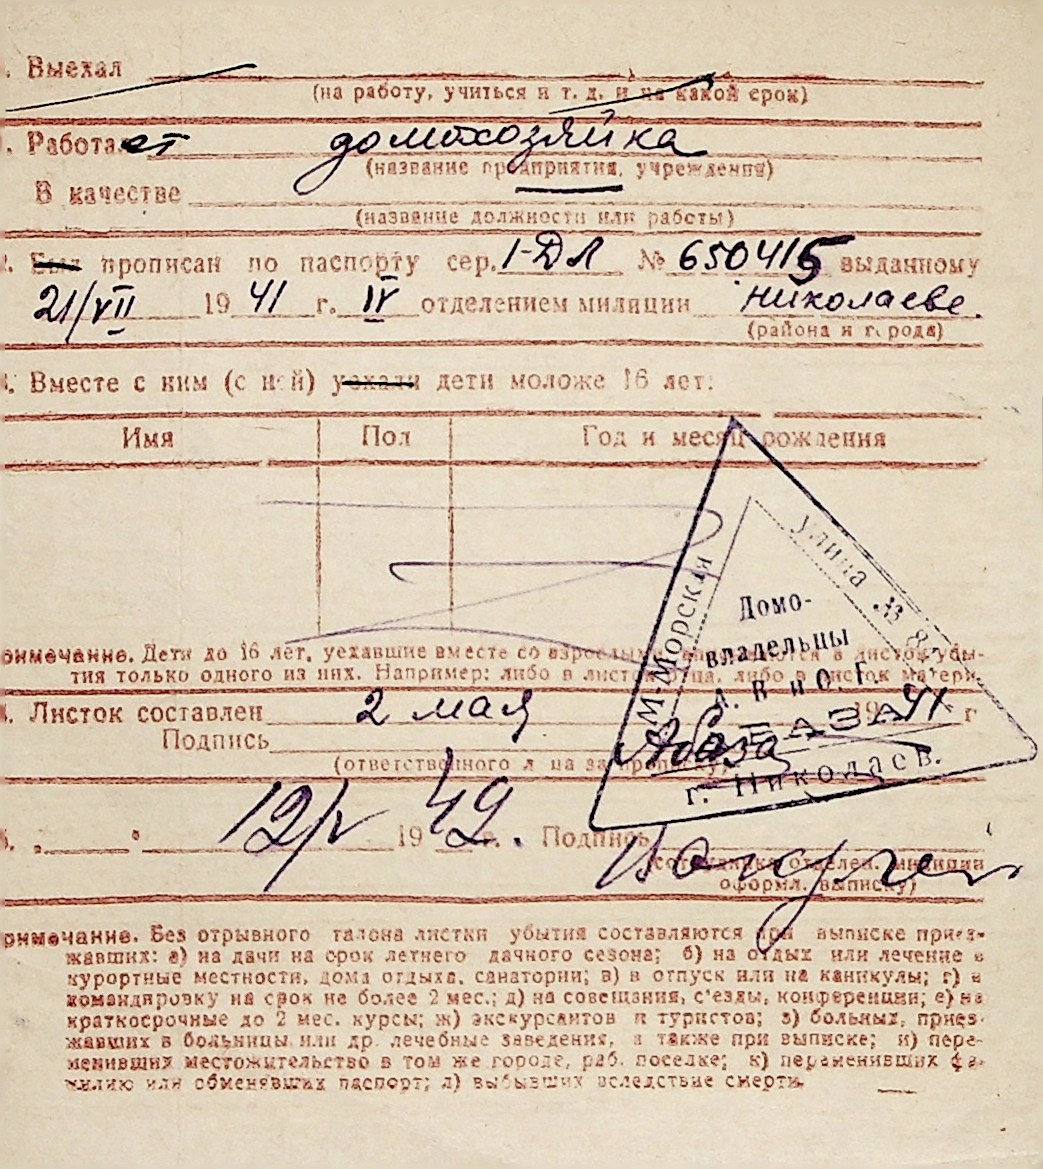 . Выехал
(на работу, учиться и т. д. и на какой срок)
. Работает домохозяйка
(название предприятия, учреждения)
В качестве
(название должности или работы)
. Был прописан по паспорту сер. 1-ДЛ № 650415 выданному
21/VII 1941 г. IV отделением милиции Николаеве.
(района и города)
. Вместе с ним (с ней) уехали дети моложе 16 лет:
Имя Пол Год и месяц рождения
М-Морская
улица № 8
Домо-
владельцы
АБАЗА
г. Николаев.
римечание. Дети до 16 лет, уехавшие вместе со взрослыми в листок убы-
тия только одного из них. Например: либо в листок отца, либо в листок матери.
. Листок составлен 2 мая 1941 г
Подпись Абаза
(ответственного л на за прописку)
. „ “ 12/V 1949 г. Подпись
(сотрудника отделен. милиции
оформл. выписку)
римечание. Без отрывного талона листки убытия составляются при выписке приез-
жавших: а) на дачи на срок летнего дачного сезона; б) на отдых или лечение в
курортные местности, дома отдыха, санатории; в) в отпуск или на каникулы; г) в
командировку на срок не более 2 мес.; д) на совещания, с'езды, конференции; е) на
краткосрочные до 2 мес. курсы; ж) экскурсантов и туристов; з) больных, приез-
жавших в больницы или др. лечебные заведения, а также при выписке; и) пере-
менивших местожительство в том же городе, раб. поселке; к) переменивших фа-
милию или обменявших паспорт; л) выбывших вследствие смерти.